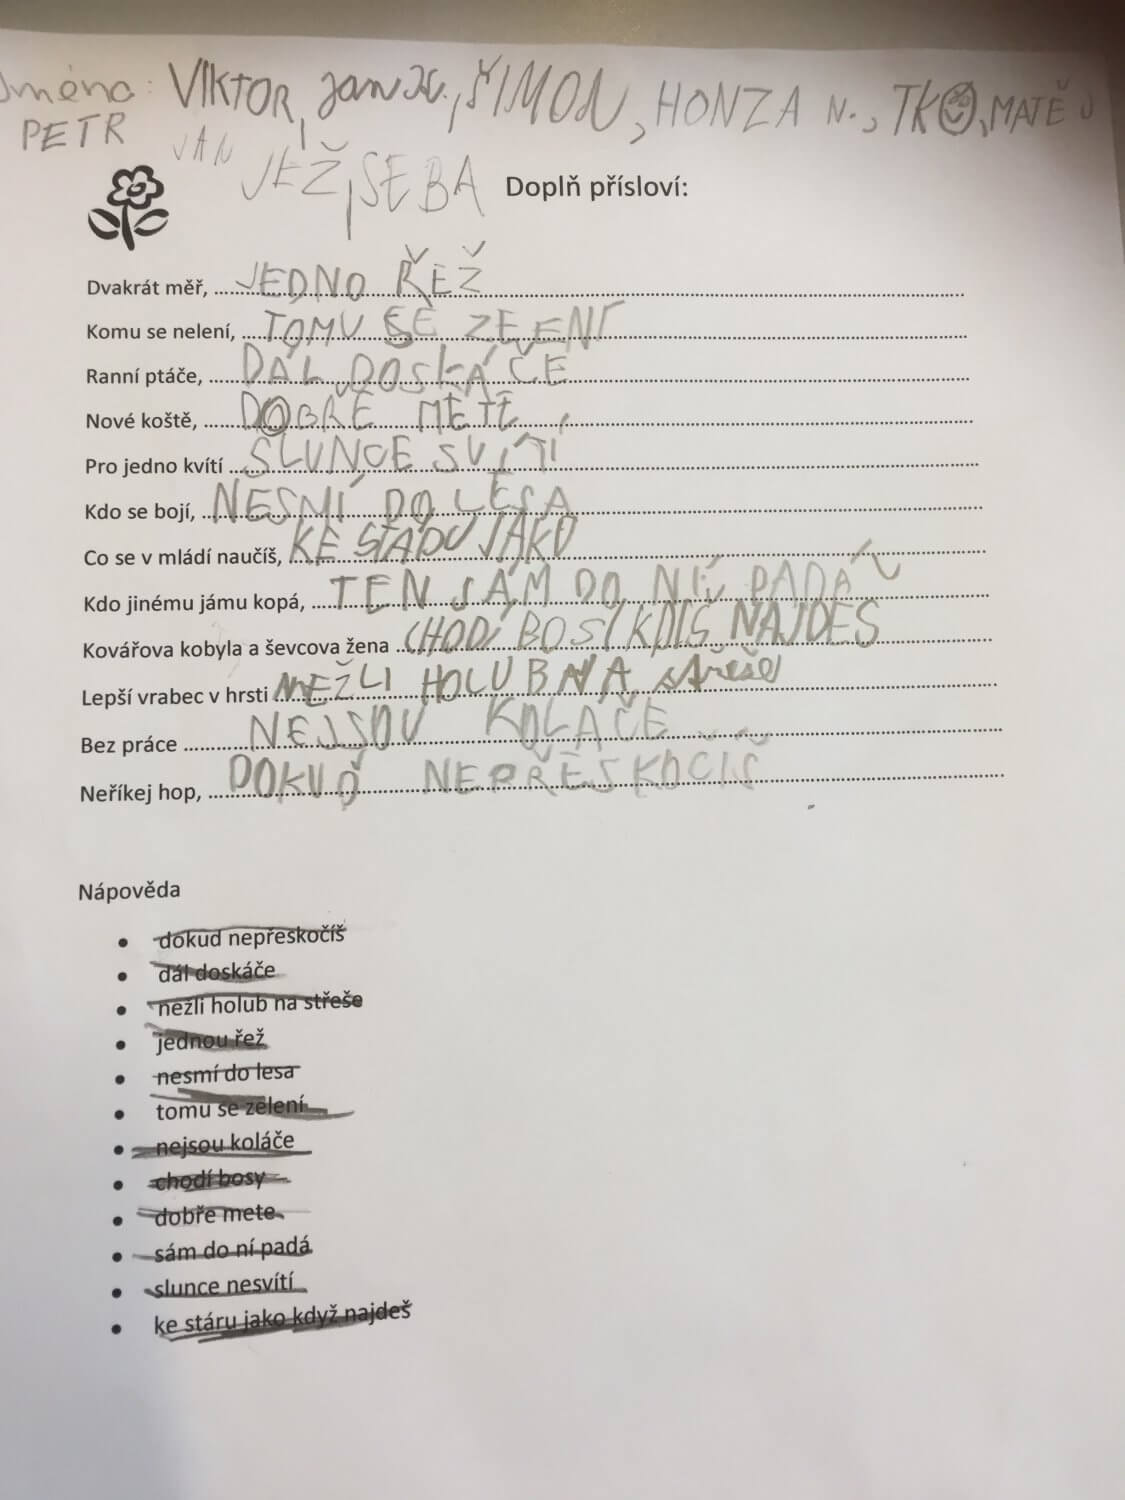 Jména: VIKTOR, Jan K., ŠIMON, HONZA N., TKO, MATĚJ
PETR JAN JEŽ, SEBA
Doplň přísloví:
Dvakrát měř, JEDNO ŘEŽ
Komu se nelení, TOMU SE ZELENÍ
Ranní ptáče, DÁL DOSKÁČE
Nové koště, DOBŘE METE
Pro jedno kvítí SLUNCE SVÍTÍ
Kdo se bojí, NESMÍ DO LESA
Co se v mládí naučíš, KE STÁDU JAKO
Kdo jinému jámu kopá, TEN SÁM DO NÍ PADÁ
Kovářova kobyla a ševcova žena CHODÍ BOSI KDIŠ NAJDEŠ
Lepší vrabec v hrsti NEŽLI HOLUB NA střeše
Bez práce NEJSOU KOLÁČE
Neříkej hop, DOKUĎ NEPŘESKOČÍŠ
Nápověda
• dokud nepřeskočíš
• dál doskáče
• nežli holub na střeše
• jednou řež
• nesmí do lesa
• tomu se zelení
• nejsou koláče
• chodí bosy
• dobře mete
• sám do ní padá
• slunce nesvítí
• ke stáru jako když najdeš